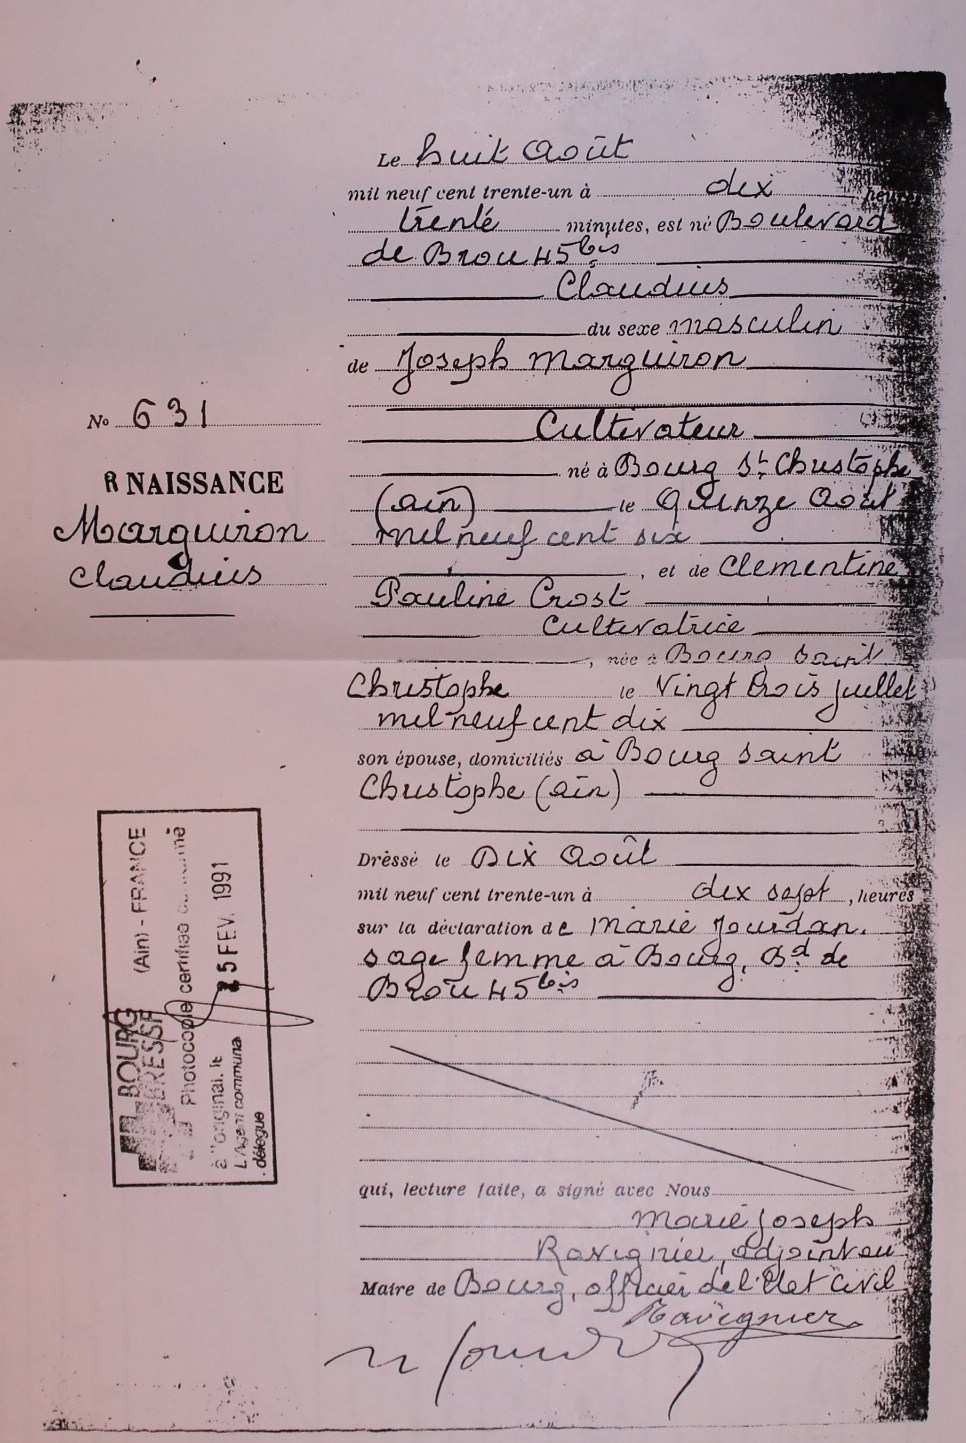 Le huit Août
mil neuf cent trente-un à dix heures
trente minutes, est né Boulevard
de Brou 45 bis
Claudius
du sexe masculin
de Joseph Marguiron
Cultivateur
né à Bourg St Christophe
(ain) le Quinze Août
mil neuf cent six
, et de Clementine
Pauline Crost
Cultivatrice
, née à Bourg saint
Christophe le Vingt trois juillet
mil neuf cent dix
son épouse, domiciliés à Bourg saint
Christophe (ain)
Dressé le Dix Août
mil neuf cent trente-un à dix sept, heures
sur la déclaration de Marie Jourdan.
sage femme à Bourg, Bd de
Brou 45 bis
qui, lecture faite, a signé avec Nous
Marie Joseph
Ravignier, adjoint au
Maire de Bourg, officier de l'Etat Civil
Ravignier
No 631
R NAISSANCE
Marguiron
Claudius
BOURG (Ain) - FRANCE
BRESSE
Photocopie certifiée conforme
à l'original, le 25 FEV. 1991
L'Agent communal
délégué